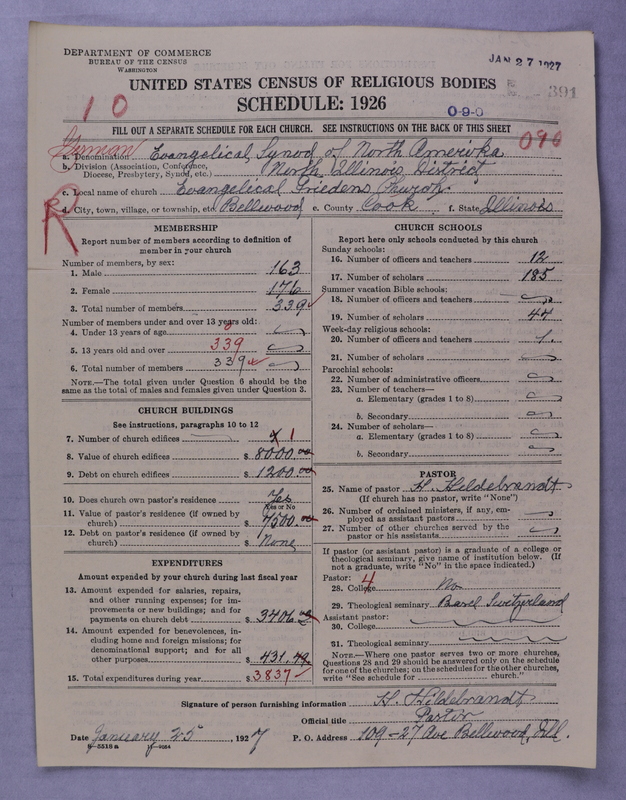 DEPARTMENT OF COMMERCE
BUREAU OF THE CENSUS
WASHINGTON
JAN 27 1927
UNITED STATES CENSUS OF RELIGIOUS BODIES
SCHEDULE: 1926
391
10
0-9-0
FILL OUT A SEPARATE SCHEDULE FOR EACH CHURCH. SEE INSTRUCTIONS ON THE BACK OF THIS SHEET
090
a. Denomination Evangelical Synod of North Amerika
b. Division (Association, Conference, North Illinois District
Diocese, Presbytery, Synod, etc.)
c. Local name of church Evangelical Friedens Church
d. City, town, village, or township, etc. Bellwood e. County Cook f. State Illinois
R
MEMBERSHIP
Report number of members according to definition of
member in your church
Number of members, by sex:
1. Male 163
2. Female 176
3. Total number of members 339
Number of members under and over 13 years old:
4. Under 13 years of age 0
5. 13 years old and over 339
6. Total number of members 339
NOTE.—The total given under Question 6 should be the
same as the total of males and females given under Question 3.
CHURCH BUILDINGS
See instructions, paragraphs 10 to 12
7. Number of church edifices 1
8. Value of church edifices $ 8000.00
9. Debt on church edifices $ 1200.00
10. Does church own pastor's residence Yes
Yes or No
11. Value of pastor's residence (if owned by
church) $ 7500.00
12. Debt on pastor's residence (if owned by
church) $ None
EXPENDITURES
Amount expended by your church during last fiscal year
13. Amount expended for salaries, repairs,
and other running expenses; for im-
provements or new buildings; and for
payments on church debt $ 3406.
14. Amount expended for benevolences, in-
cluding home and foreign missions; for
denominational support; and for all
other purposes $ 431.
15. Total expenditures during year $ 3837
CHURCH SCHOOLS
Report here only schools conducted by this church
Sunday schools:
16. Number of officers and teachers 12
17. Number of scholars 185
Summer vacation Bible schools:
18. Number of officers and teachers
19. Number of scholars 44
Week-day religious schools:
20. Number of officers and teachers 1.
21. Number of scholars
Parochial schools:
22. Number of administrative officers
23. Number of teachers—
a. Elementary (grades 1 to 8)
b. Secondary
24. Number of scholars—
a. Elementary (grades 1 to 8)
b. Secondary
PASTOR
25. Name of pastor H. Hildebrandt
(If church has no pastor, write "None")
26. Number of ordained ministers, if any, em-
ployed as assistant pastors
27. Number of other churches served by the
pastor or his assistants
If pastor (or assistant pastor) is a graduate of a college or
theological seminary, give name of institution below. (If
not a graduate, write "No" in the space indicated.)
Pastor: 4
28. College No
29. Theological seminary Basel Switzerland
Assistant pastor:
30. College
31. Theological seminary
NOTE.—Where one pastor serves two or more churches,
Questions 28 and 29 should be answered only on the schedule
for one of the churches; on the schedules for the other churches,
write "See schedule for church."
Signature of person furnishing information H. Hildebrandt
Official title Pastor
Date January 25, 1927 P. O. Address 109-27 Ave Bellwood, Ill.
8-5518a